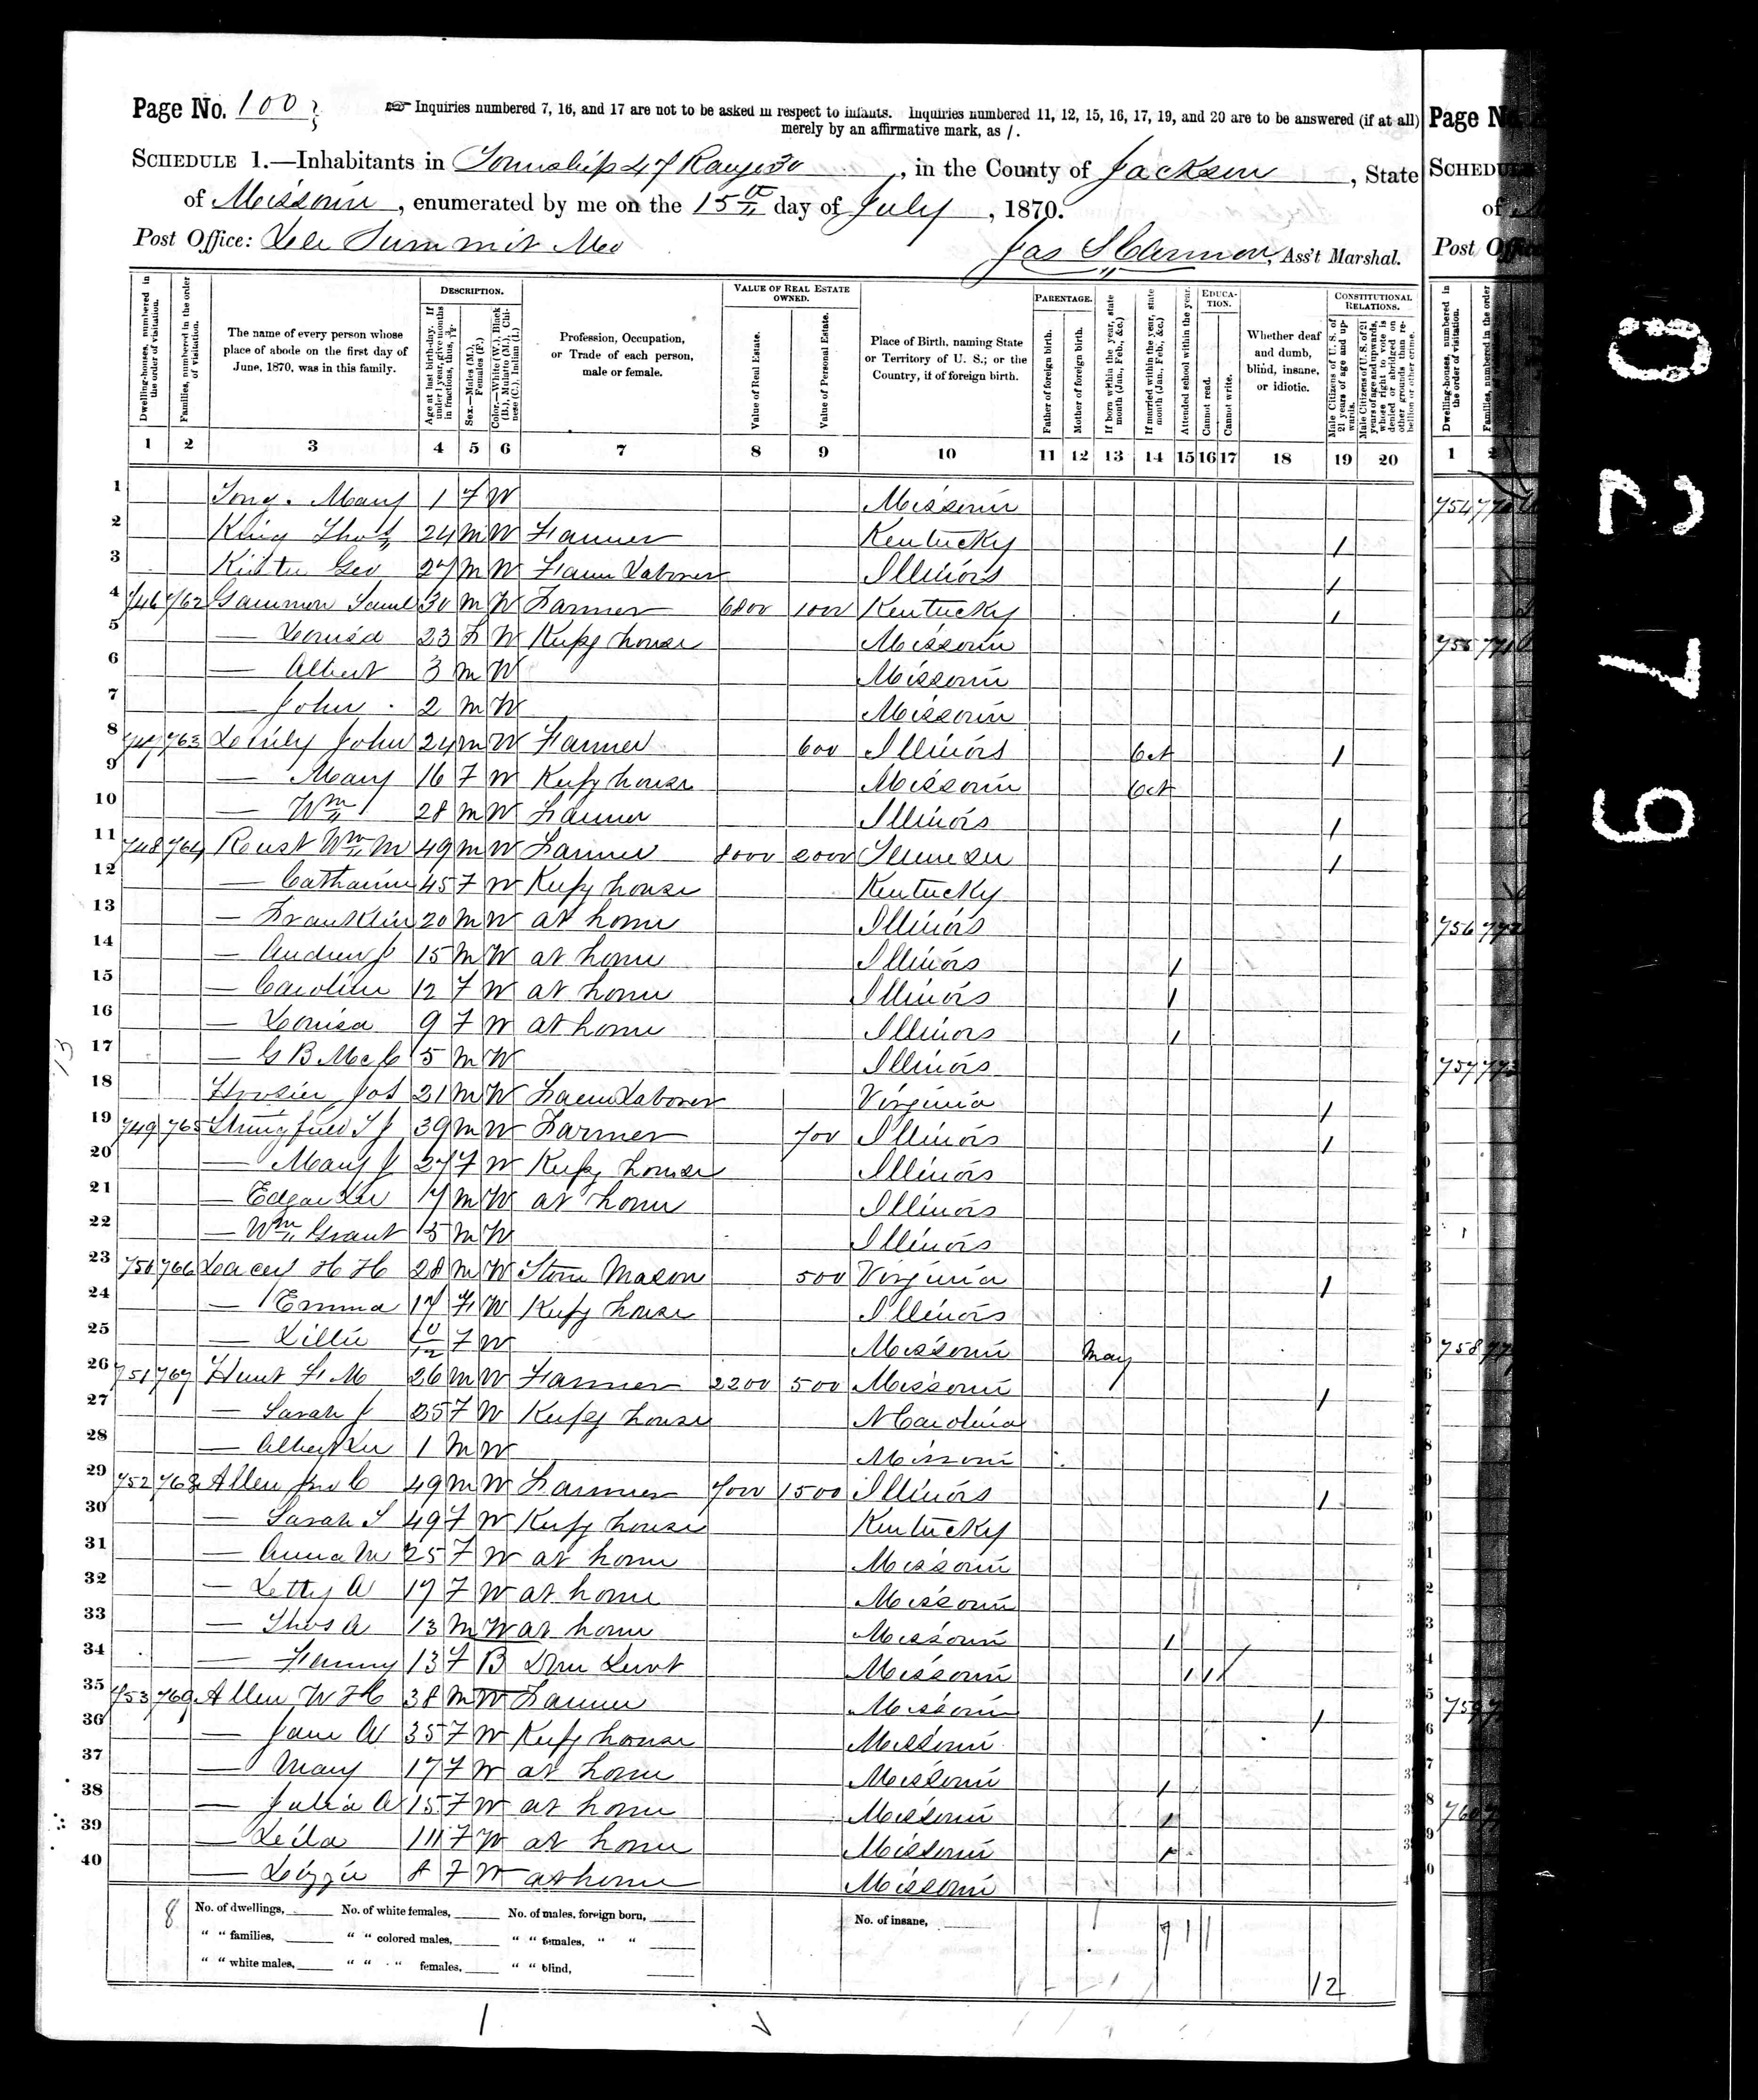 Page No. 100
Inquiries numbered 7, 16, and 17 are not to be asked in respect to infants. Inquiries numbered 11, 12, 15, 16, 17, 19, and 20 are to be answered (if at all)
merely by an affirmative mark, as /.
SCHEDULE 1.—Inhabitants in Township 47 Range 30, in the County of Jackson, State
of Missouri, enumerated by me on the 15th day of July, 1870.
Post Office: Lee Summit Mo
Jas, Ass't Marshal.
Dwelling-houses, numbered in the order of visitation.
Families, numbered in the order of visitation.
The name of every person whose place of abode on the first day of June, 1870, was in this family.
DESCRIPTION.
Age at last birth-day. If under 1 year, give months in fractions, thus, 3/12.
Sex.—Males (M.), Females (F.)
Color.—White (W.), Black (B.), Mulatto (M.), Chinese (C.), Indian (I.)
Profession, Occupation, or Trade of each person, male or female.
VALUE OF REAL ESTATE OWNED.
Value of Real Estate.
Value of Personal Estate.
Place of Birth, naming State or Territory of U. S.; or the Country, if of foreign birth.
PARENTAGE.
Father of foreign birth.
Mother of foreign birth.
If born within the year, state month (Jan., Feb., &c.)
If married within the year, state month (Jan., Feb., &c.)
Attended school within the year.
EDUCATION.
Cannot read.
Cannot write.
Whether deaf and dumb, blind, insane, or idiotic.
CONSTITUTIONAL RELATIONS.
Male Citizens of U. S. of 21 years of age and upwards.
Male Citizens of U. S. of 21 years of age and upwards, whose right to vote is denied or abridged on other grounds than rebellion or other crime.
1 2 3 4 5 6 7 8 9 10 11 12 13 14 15 16 17 18 19 20
1 Mary 1 F W Missouri
2 King Thos 24 M W Farmer Kentucky /
3 Geo 27 M W Farm Laborer Illinois /
4 746 762 Gammon Saml 30 M W Farmer 6800 1000 Kentucky /
5 — Louisa 23 F W Kupg house Missouri
6 — Albert 3 M W Missouri
7 — John 2 M W Missouri
8 747 763 John 24 M W Farmer 600 Illinois Oct /
9 — Mary 16 F W Kupg house Missouri Oct
10 — Wm 28 M W Farmer Illinois /
11 748 764 Wm M 49 M W Farmer 8000 2000 Tennessee /
12 — Catharine 45 F W Kupg house Kentucky
13 — Franklin 20 M W at home Illinois
14 — Andrew J 15 M W at home Illinois /
15 — Caroline 12 F W at home Illinois /
16 — Louisa 9 F W at home Illinois /
17 — G B McC 5 M W Illinois
18 Jos 21 M W Farm Laborer Virginia /
19 749 765 Stringfield T J 39 M W Farmer 700 Illinois /
20 — Mary J 27 F W Kupg house Illinois
21 — Edgar Lee 7 M W at home Illinois
22 — Wm Grant 5 M W Illinois
23 750 766 Lacey H H 28 M W Stone Mason 500 Virginia /
24 — Emma 17 F W Kupg house Illinois
25 — Lillie F W Missouri May
26 751 767 Hunt F M 26 M W Farmer 2200 500 Missouri /
27 — Sarah J 25 F W Kupg house N Carolina
28 — Albert Lee 1 M W Missouri
29 752 768 Allen Jno C 49 M W Farmer 7000 1500 Illinois /
30 — Sarah S 49 F W Kupg house Kentucky
31 — Anna M 25 F W at home Missouri
32 — Letty A 17 F W at home Missouri
33 — Thos A 13 M W at home Missouri /
34 — Fanny 13 F B Dom Servt Missouri / /
35 753 769 Allen W H 38 M W Farmer Missouri /
36 — Jane A 35 F W Kupg house Missouri
37 — Mary 17 F W at home Missouri /
38 — Julia A 15 F W at home Missouri /
39 — Leila 11 F W at home Missouri /
40 — Lizzie 8 F W at home Missouri
8 No. of dwellings, No. of white females, No. of males, foreign born, No. of insane,
" " families, " " colored males, " " females, " "
" " white males, " " " females, " " blind,
12
Page N
SCHEDU
of
Post O
Dwelling-houses, numbered in the order of visitation.
1
754
755
756
757
758
759
760
0279